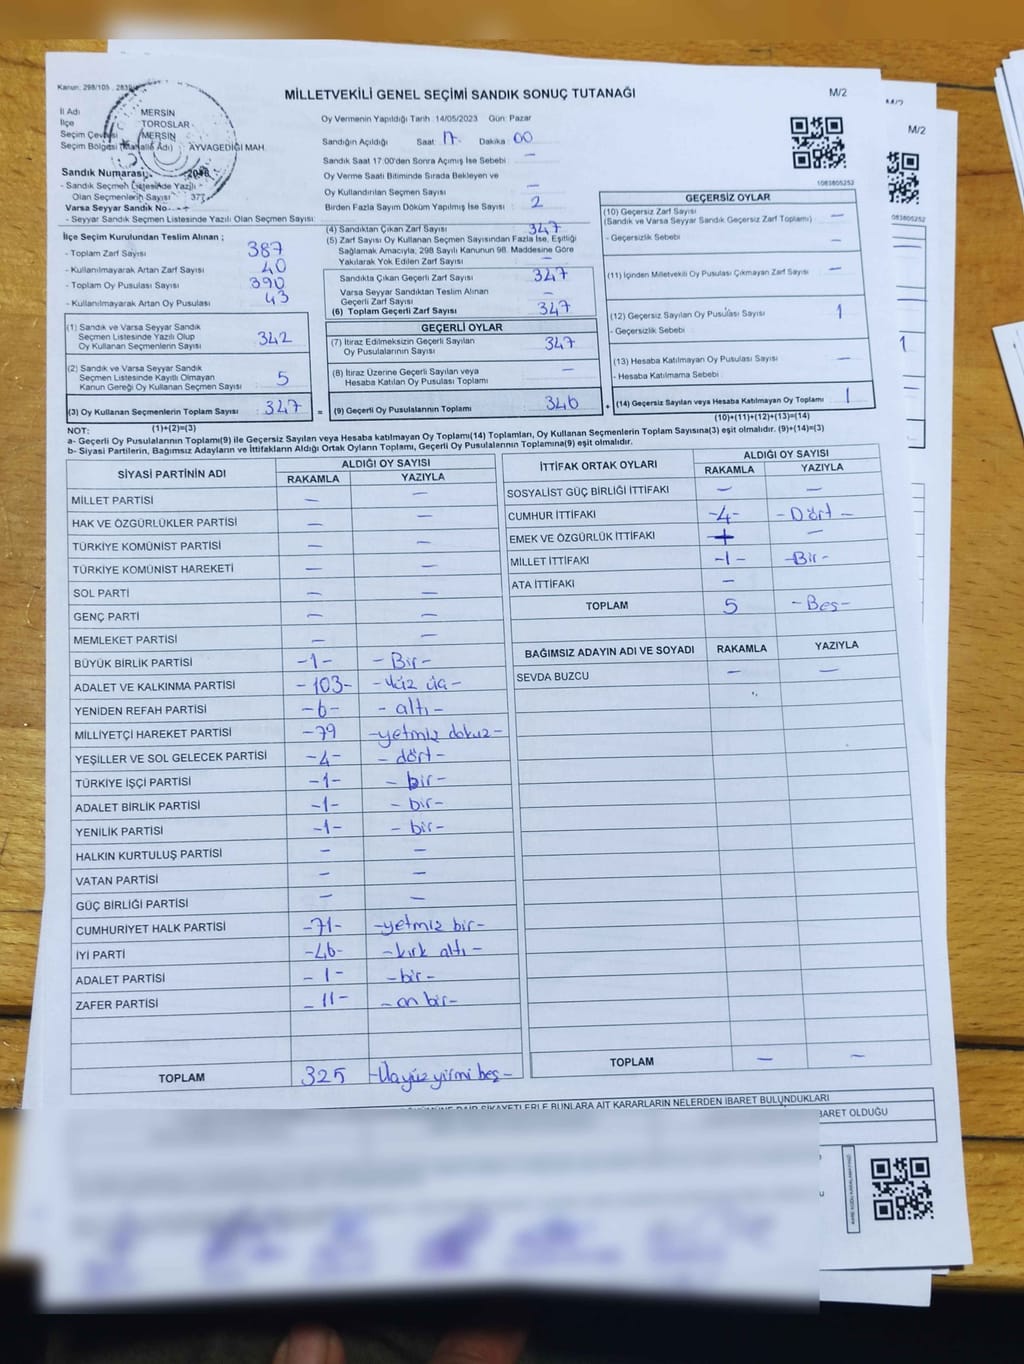 Kanun: 298/105
MİLLETVEKİLİ GENEL SEÇİMİ SANDIK SONUÇ TUTANAĞI
M/2
İl Adı MERSİN
İlçe TOROSLAR
Seçim Çevresi MERSİN
Seçim Bölgesi (Mahalle Adı) AYVAGEDİĞİ MAH.
Sandık Numarası
- Sandık Seçmen Listesinde Yazılı
Olan Seçmenlerin Sayısı 377
Varsa Seyyar Sandık No
- Seyyar Sandık Seçmen Listesinde Yazılı Olan Seçmen Sayısı:
Oy Vermenin Yapıldığı Tarih :14/05/2023 Gün: Pazar
Sandığın Açıldığı Saat 17 Dakika 00
Sandık Saat 17:00'den Sonra Açımış İse Sebebi —
Oy Verme Saati Bitiminde Sırada Bekleyen ve
Oy Kullandırılan Seçmen Sayısı —
Birden Fazla Sayım Döküm Yapılmış İse Sayısı 2
1083805252
İlçe Seçim Kurulundan Teslim Alınan ;
- Toplam Zarf Sayısı 387
- Kullanılmayarak Artan Zarf Sayısı 40
- Toplam Oy Pusulası Sayısı 390
- Kullanılmayarak Artan Oy Pusulası 43
(1) Sandık ve Varsa Seyyar Sandık
Seçmen Listesinde Yazılı Olup
Oy Kullanan Seçmenlerin Sayısı 342
(2) Sandık ve Varsa Seyyar Sandık
Seçmen Listesinde Kayıtlı Olmayan
Kanun Gereği Oy Kullanan Seçmen Sayısı 5
(3) Oy Kullanan Seçmenlerin Toplam Sayısı 347 =
(1)+(2)=(3)
(4) Sandıktan Çıkan Zarf Sayısı 347
(5) Zarf Sayısı Oy Kullanan Seçmen Sayısından Fazla İse, Eşitliği
Sağlamak Amacıyla; 298 Sayılı Kanunun 98. Maddesine Göre
Yakılarak Yok Edilen Zarf Sayısı —
Sandıkta Çıkan Geçerli Zarf Sayısı 347
Varsa Seyyar Sandıktan Teslim Alınan
Geçerli Zarf Sayısı —
(6) Toplam Geçerli Zarf Sayısı 347
GEÇERLİ OYLAR
(7) İtiraz Edilmeksizin Geçerli Sayılan
Oy Pusulalarının Sayısı 347
(8) İtiraz Üzerine Geçerli Sayılan veya
Hesaba Katılan Oy Pusulası Toplamı —
(9) Geçerli Oy Pusulalarının Toplamı 346 +
GEÇERSİZ OYLAR
(10) Geçersiz Zarf Sayısı
(Sandık ve Varsa Seyyar Sandık Geçersiz Zarf Toplamı) —
- Geçersizlik Sebebi —
(11) İçinden Milletvekili Oy Pusulası Çıkmayan Zarf Sayısı —
(12) Geçersiz Sayılan Oy Pusulası Sayısı 1
- Geçersizlik Sebebi
(13) Hesaba Katılmayan Oy Pusulası Sayısı —
- Hesaba Katılmama Sebebi
(14) Geçersiz Sayılan veya Hesaba Katılmayan Oy Toplamı 1
(10)+(11)+(12)+(13)=(14)
NOT:
a- Geçerli Oy Pusulalarının Toplamı(9) ile Geçersiz Sayılan veya Hesaba katılmayan Oy Toplamı(14) Toplamları, Oy Kullanan Seçmenlerin Toplam Sayısına(3) eşit olmalıdır. (9)+(14)=(3)
b- Siyasi Partilerin, Bağımsız Adayların ve İttifakların Aldığı Ortak Oyların Toplamı, Geçerli Oy Pusulalarının Toplamına(9) eşit olmalıdır.
SİYASİ PARTİNİN ADI ALDIĞI OY SAYISI
RAKAMLA YAZIYLA
MİLLET PARTİSİ — —
HAK VE ÖZGÜRLÜKLER PARTİSİ — —
TÜRKİYE KOMÜNİST PARTİSİ — —
TÜRKİYE KOMÜNİST HAREKETİ — —
SOL PARTİ — —
GENÇ PARTİ — —
MEMLEKET PARTİSİ — —
BÜYÜK BİRLİK PARTİSİ -1- -Bir-
ADALET VE KALKINMA PARTİSİ -103- -Yüz üç-
YENİDEN REFAH PARTİSİ -6- -altı-
MİLLİYETÇİ HAREKET PARTİSİ -79 -yetmiz dokuz-
YEŞİLLER VE SOL GELECEK PARTİSİ -4- -dört-
TÜRKİYE İŞÇİ PARTİSİ -1- -bir-
ADALET BİRLİK PARTİSİ -1- -bir-
YENİLİK PARTİSİ -1- -bir-
HALKIN KURTULUŞ PARTİSİ — —
VATAN PARTİSİ — —
GÜÇ BİRLİĞİ PARTİSİ — —
CUMHURİYET HALK PARTİSİ -71- -yetmiz bir-
İYİ PARTİ -46- -kırk altı-
ADALET PARTİSİ -1- -bir-
ZAFER PARTİSİ -11- -on bir-
TOPLAM 325 -Üçyüz yirmi beş-
İTTİFAK ORTAK OYLARI ALDIĞI OY SAYISI
RAKAMLA YAZIYLA
SOSYALİST GÜÇ BİRLİĞİ İTTİFAKI — —
CUMHUR İTTİFAKI -4- -Dört-
EMEK VE ÖZGÜRLÜK İTTİFAKI —
MİLLET İTTİFAKI -1- -Bir-
ATA İTTİFAKI —
TOPLAM 5 -Beş-
BAĞIMSIZ ADAYIN ADI VE SOYADI RAKAMLA YAZIYLA
SEVDA BUZCU — —
TOPLAM — —
ŞİKAYETLERLE BUNLARA AİT KARARLARIN NELERDEN İBARET BULUNDUKLARI
İBARET OLDUĞU
M/2
083805252
1